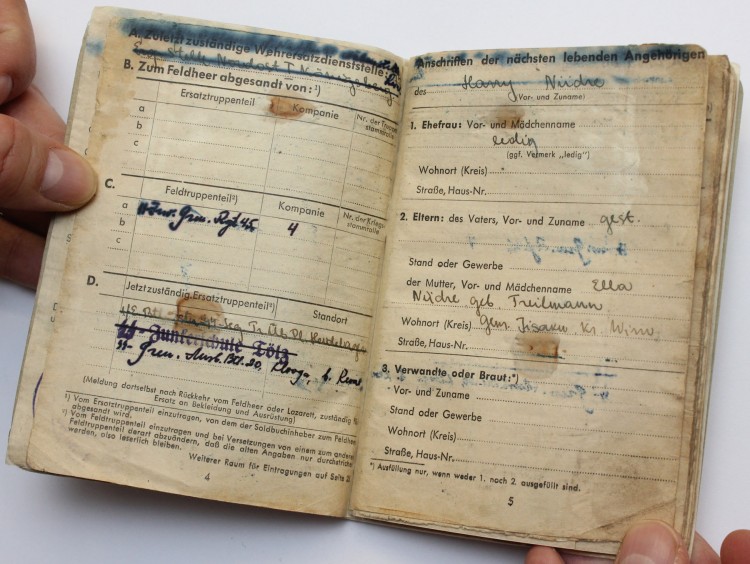 A. Zuletzt zuständige Wehrersatzdienststelle:
Nordost I Königsberg
B. Zum Feldheer abgesandt von: ¹)
Ersatztruppenteil
Kompanie
Nr. der Truppen-
stammrolle
a
b
c
C.
Feldtruppenteil²)
Kompanie
Nr. der Kriegs-
stammrolle
a
Gren. Rgt 45
4
b
c
D.
Jetzt zuständig. Ersatztruppenteil³)
Standort
Junkerschule Tölz
Gren. Ausb. Btl. 20,
(Meldung dortselbst nach Rückkehr vom Feldheer oder Lazarett, zuständig für
Ersatz an Bekleidung und Ausrüstung)
¹) Vom Ersatztruppenteil einzutragen, von dem der Soldbuchinhaber zum Feldheer
abgesandt wird.
²) Vom Feldtruppenteil einzutragen und bei Versetzungen von einem zum anderen
Feldtruppenteil derart abzuändern, daß die alten Angaben nur durchstrichen
werden, also leserlich bleiben.
Weiterer Raum für Eintragungen auf Seite
4
Anschriften der nächsten lebenden Angehörigen
des Harry
(Vor- und Zuname)
1. Ehefrau: Vor- und Mädchenname
ledig
(ggf. Vermerk „ledig")
Wohnort (Kreis)
Straße, Haus-Nr.
2. Eltern: des Vaters, Vor- und Zuname gest.
Stand oder Gewerbe
der Mutter, Vor- und Mädchenname Ella
geb. Treilmann
Wohnort (Kreis) Gem. Iisaku Kr.
Straße, Haus-Nr.
3. Verwandte oder Braut:*)
Vor- und Zuname
Stand oder Gewerbe
Wohnort (Kreis)
Straße, Haus-Nr.
*) Ausfüllung nur, wenn weder 1. noch 2. ausgefüllt sind.
5